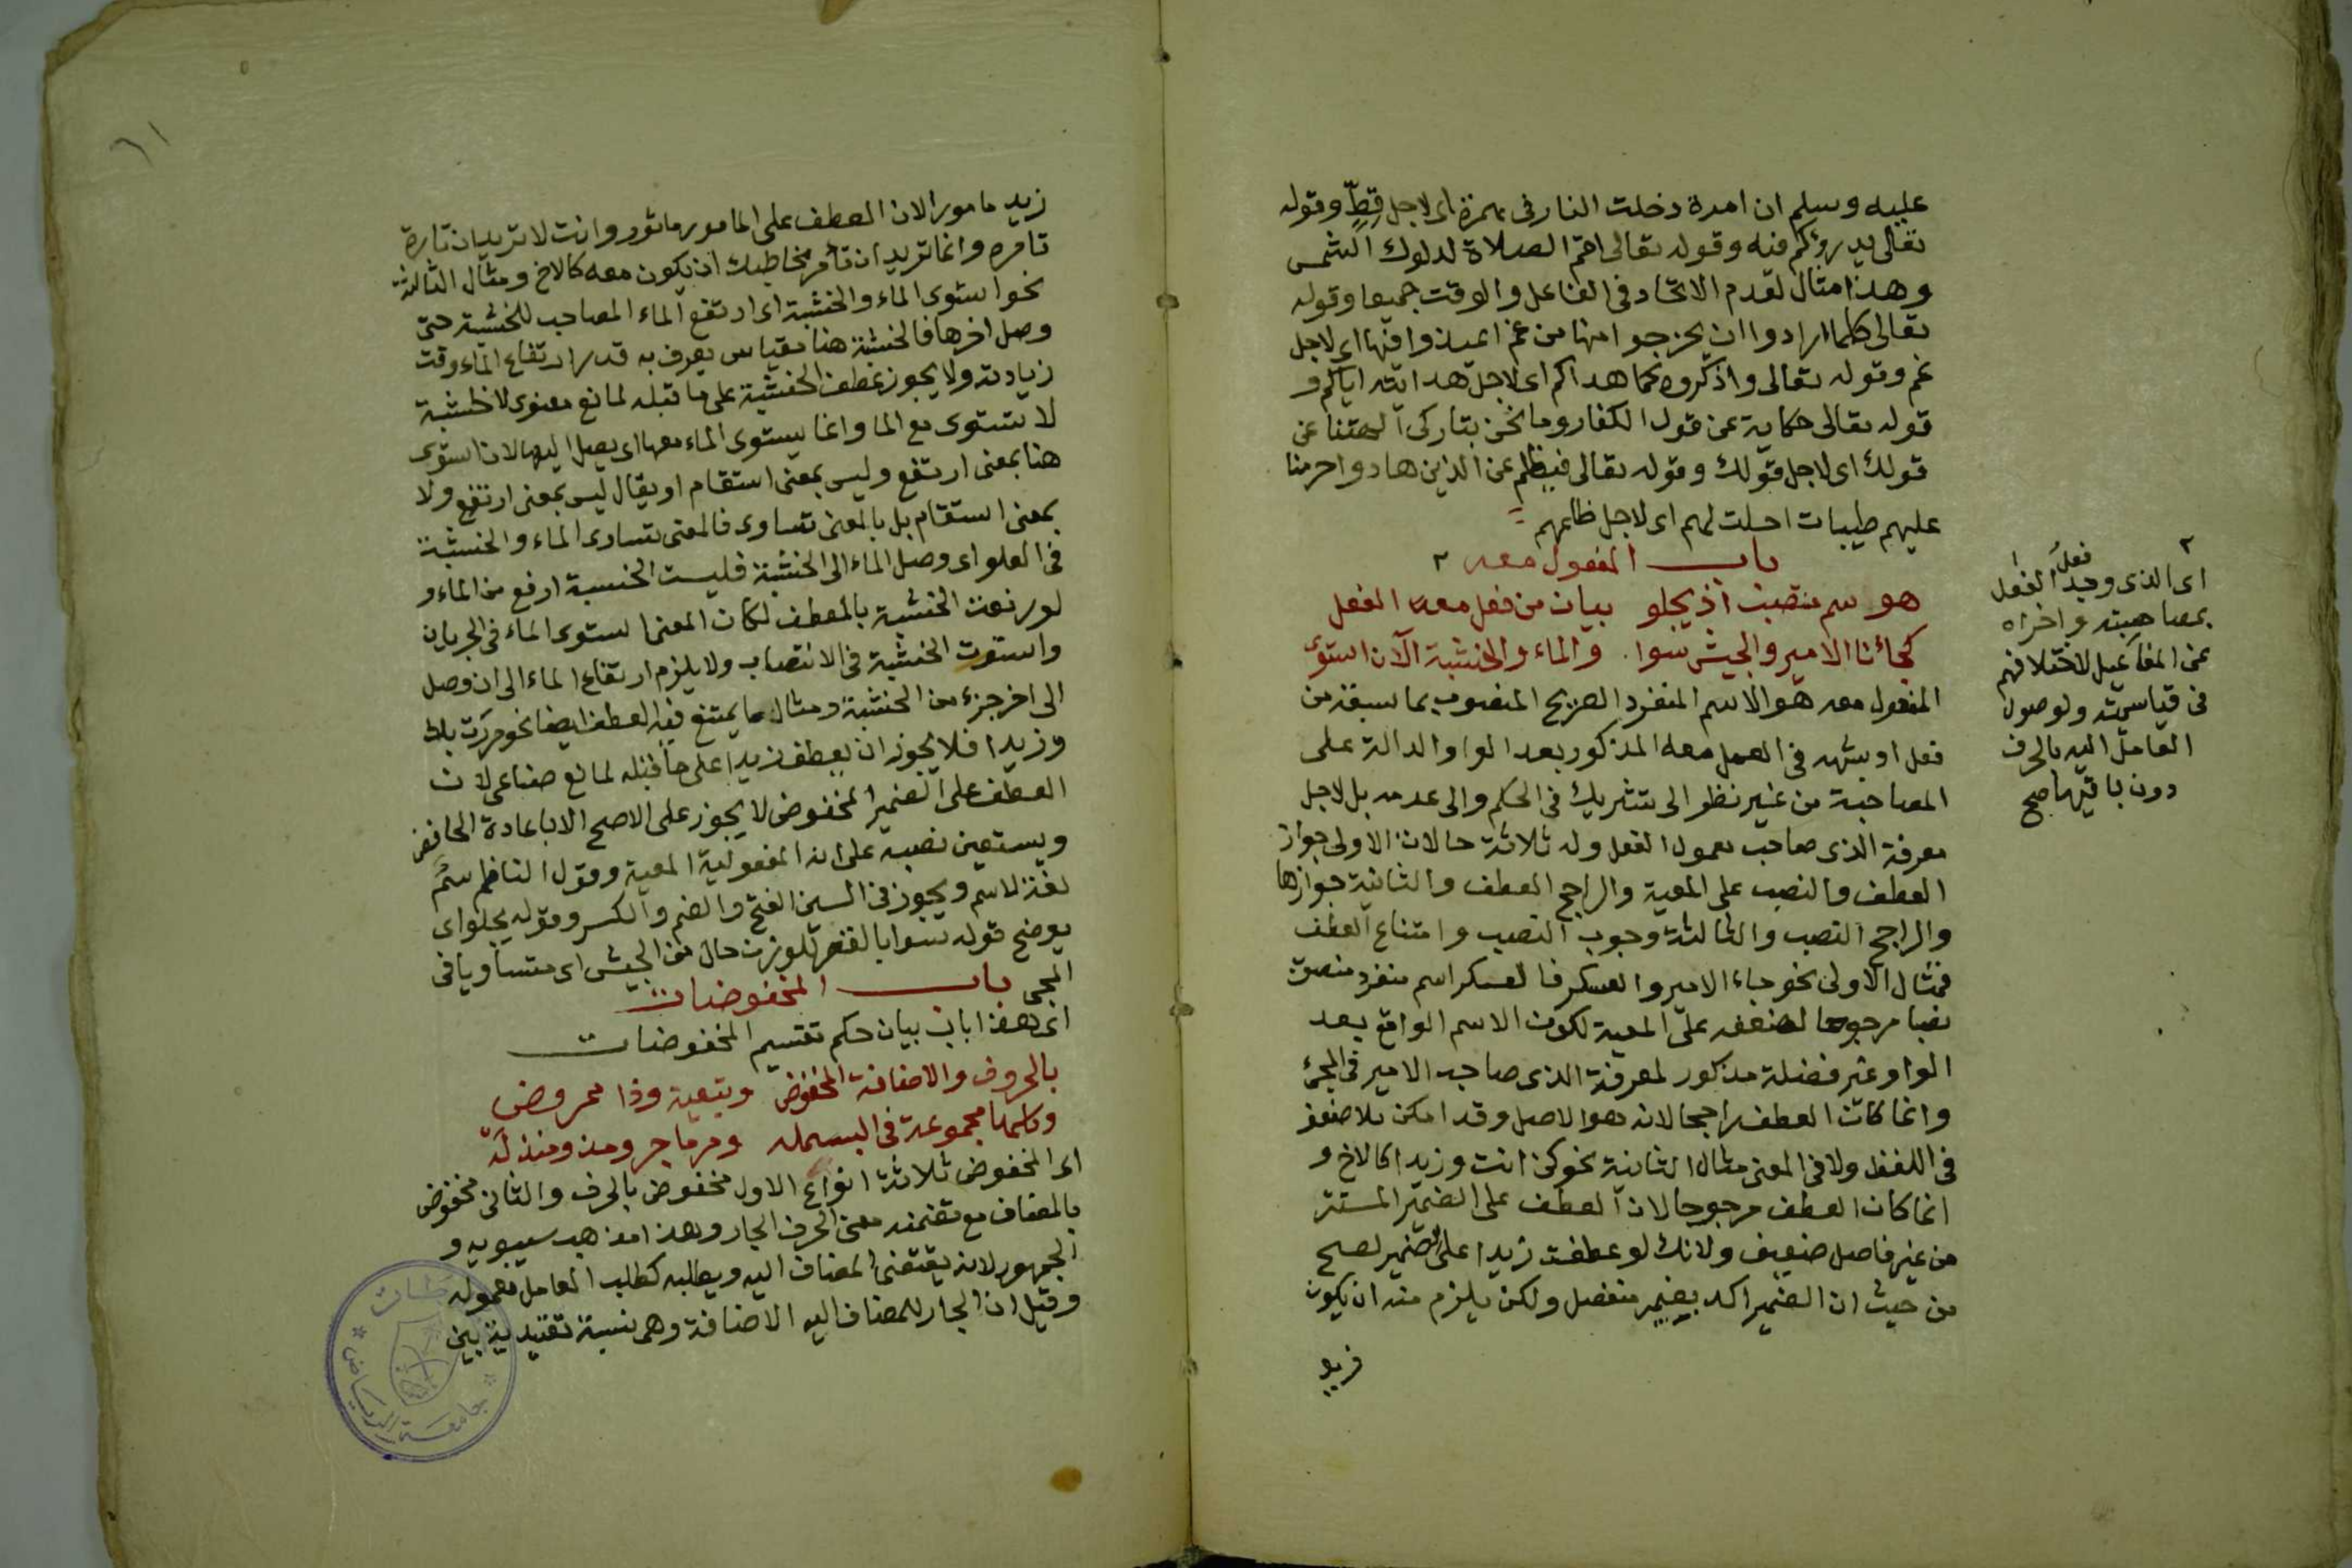 عليه وسلم ان امرة دخلت النار فى هرة اى لاجل قط وقوله
تعالى يذرؤكم فيه وقوله تعالى اقم الصلاة لدلوك الشمس
وهذا مثال لعدم الاتحاد فى الفاعل والوقت جميعا وقوله
تعالى كلما ارادوا ان يخرجوا منها من غم اعيدوا فيها اى لاجل
غم وقوله تعالى واذكروه كما هداكم اى لاجل هدايته اياكم و
قوله تعالى حكاية عن قول الكفار وما نحن بتاركى آلهتنا عن
قولك اى لاجل قولك وقوله تعالى فبظلم من الذين هادوا حرمنا
عليهم طيبات احلت لهم اى لاجل ظلمهم
باب المفعول معه ٢
هو سم منتصب اذ يجلو بيان من فعل معه الفعل
كجائنا الامير والجيش سوا والماء والخشبة الآن استوى
المفعول معه هو الاسم المنفرد الصريح المنصوب بما سبقه من
فعل او شبهه فى العمل معه المذكور بعد الواو الدالة على
المصاحبة من غير نظر الى تشريك فى الحكم والى عدمه بل لاجل
معرفة الذى صاحب معمول الفعل وله ثلاثة حالات الاولى جواز
العطف والنصب على المعية والراجح العطف والثانية جوازها
والراجح النصب والثالثة وجوب النصب وامتناع العطف
فمثال الاولى نحو جاء الامير والعسكر فالعسكر اسم منفرد منصوب
نصبا مرجوحا لضعفه على المعية لكون الاسم الواقع بعد
الواو غير فضلة مذكور لمعرفة الذى صاحب الامير فى المجئ
وانما كان العطف راجحا لانه هو الاصل وقد امكن بلا ضعف
فى اللفظ ولا فى المعنى مثال الثانية نحو كن انت وزيدا كالاخ و
انما كان العطف مرجوحا لان العطف على الضمير المستتر
من غير فاصل ضعيف ولانك لو عطفت زيدا على الضمير لصح
من حيث ان الضمير اكد بضمير منفصل ولكن يلزم منه ان يكون
زيد
٢
فعل
اى الذى وجد الفعل
بمصاحبته واخراه
عن المفاعيل لاختلافهم
فى قياسيته ولوصول
العامل اليه بالحرف
دون باقيها صح
٦١
زيد مامورا لان العطف على المامور مامور وانت لا تريد ان
تامره وانما تريد ان تأمر مخاطبك ان يكون معه كالاخ ومثال الثالثة
نحو استوى الماء والخشبة اى ارتفع الماء المصاحب للخشبة حتى
وصل اخرها فالخشبة هنا مقياس يعرف به قدر ارتفاع الماء وقت
زيادته ولا يجوز عطف الخشبة على ما قبله لمانع معنوى لا خشبة
لا تستوى مع الما وانما يستوى الماء معها اى يصل اليها لان استوى
هنا بمعنى ارتفع وليس بمعنى استقام او يقال ليس بمعنى ارتفع ولا
بمعنى استقام بل بالمعنى تساوى فالمعنى تساوى الماء والخشبة
فى العلو اى وصل الماء الى الخشبة فليست الخشبة ارفع من الماء و
لو رفعت الخشبة بالعطف لكان المعنى استوى الماء فى الجريان
واستوت الخشبة فى الانتصاب ولا يلزم ارتفاع الماء الى ان وصل
الى اخر جزء من الخشبة ومثال ما يمتنع فيه العطف ايضا نحو مررت بك
وزيدا فلا يجوز ان يعطف زيدا على ما قبله لمانع صناعى لان
العطف على الضمير المخفوض لا يجوز على الاصح الا باعادة الخافض
ويستعين نصبه على انه المفعولية المعية وقول الناظم سم
لغة لاسم ويجوز فى السين الفتح والضم والكسر وقوله يجلو اى
يوضح قوله سوا بالقصر للوزن حال من الجيش اى متساويا فى
المجى باب المخفوضات
اى هذا باب بيان حكم تقسيم المخفوضات
بالحروف والاضافة المخفوض وبتبعية وذا محروض
وكلها مجموعة فى البسمله ومرما جر ومذ ومنذ له
اى المخفوض ثلاثة انواع الاول مخفوض بالحرف والثانى مخفوض
بالمضاف مع تضمنه معنى الحرف الجار وهذا مذهب سيبويه و
الجمهور لانه يقتضى المضاف اليه ويطلبه كطلب العامل معموله
وقيل ان الجار للمضاف اليه الاضافة وهى نسبة تقييدية بين
جامعة الرياض